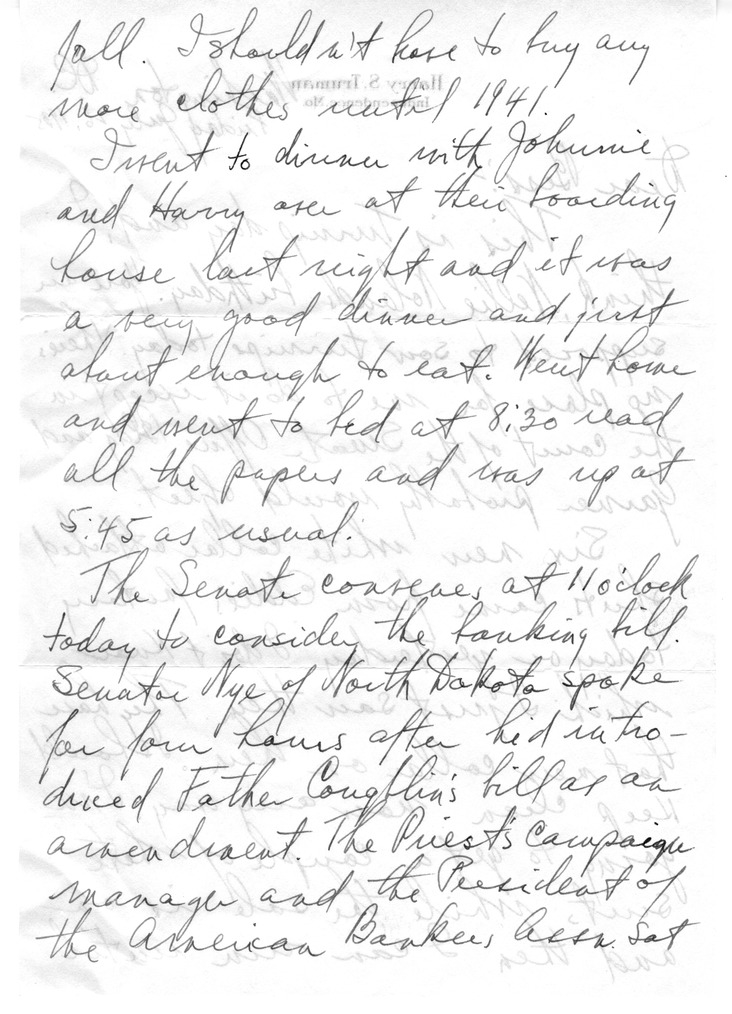 fall. I shouldn't have to buy any
more clothes until 1941.
I went to dinner with Johnnie
and Harry over at their boarding
house last night and it was
a very good dinner and just
about enough to eat. Went home
and went to bed at 8:30 read
all the papers and was up at
5:45 as usual.
The Senate convenes at 11 o'clock
today to consider the banking bill.
Senator Nye of North Dakota spoke
for four hours after he'd intro-
duced Father Coughlin's bill as an
amendment. The Priest's campaign
manager and the President of
the American Bankers Assn. sat